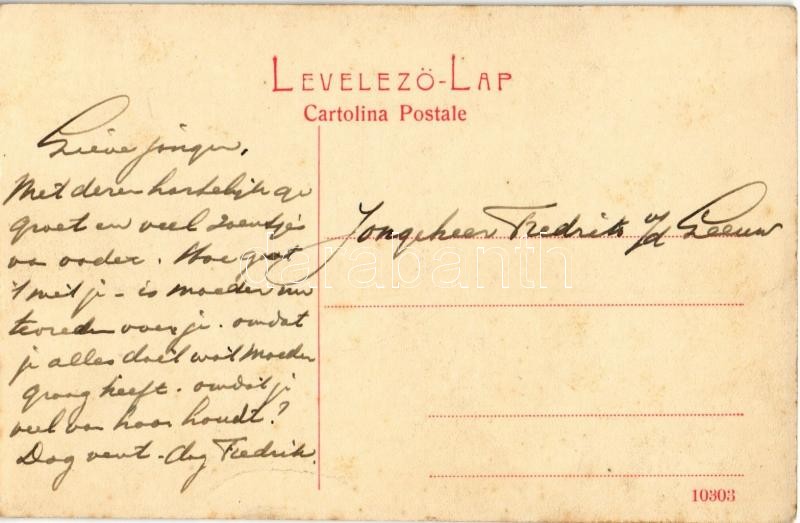 LEVELEZŐ-LAP
Cartolina Postale
Lieve jongen,
Met dezen hartelijk ge
groet en veel zoentjes
van vader. Hoe gaat
't met je - is moeder nu
tevreden over je. omdat
je alles doet wat Moeder
graag heeft. omdat je
veel van haar houdt?
Dag vent - dag Fredrik.
Jongeheer Fredrik v/d Leeuw
darabanth
10303